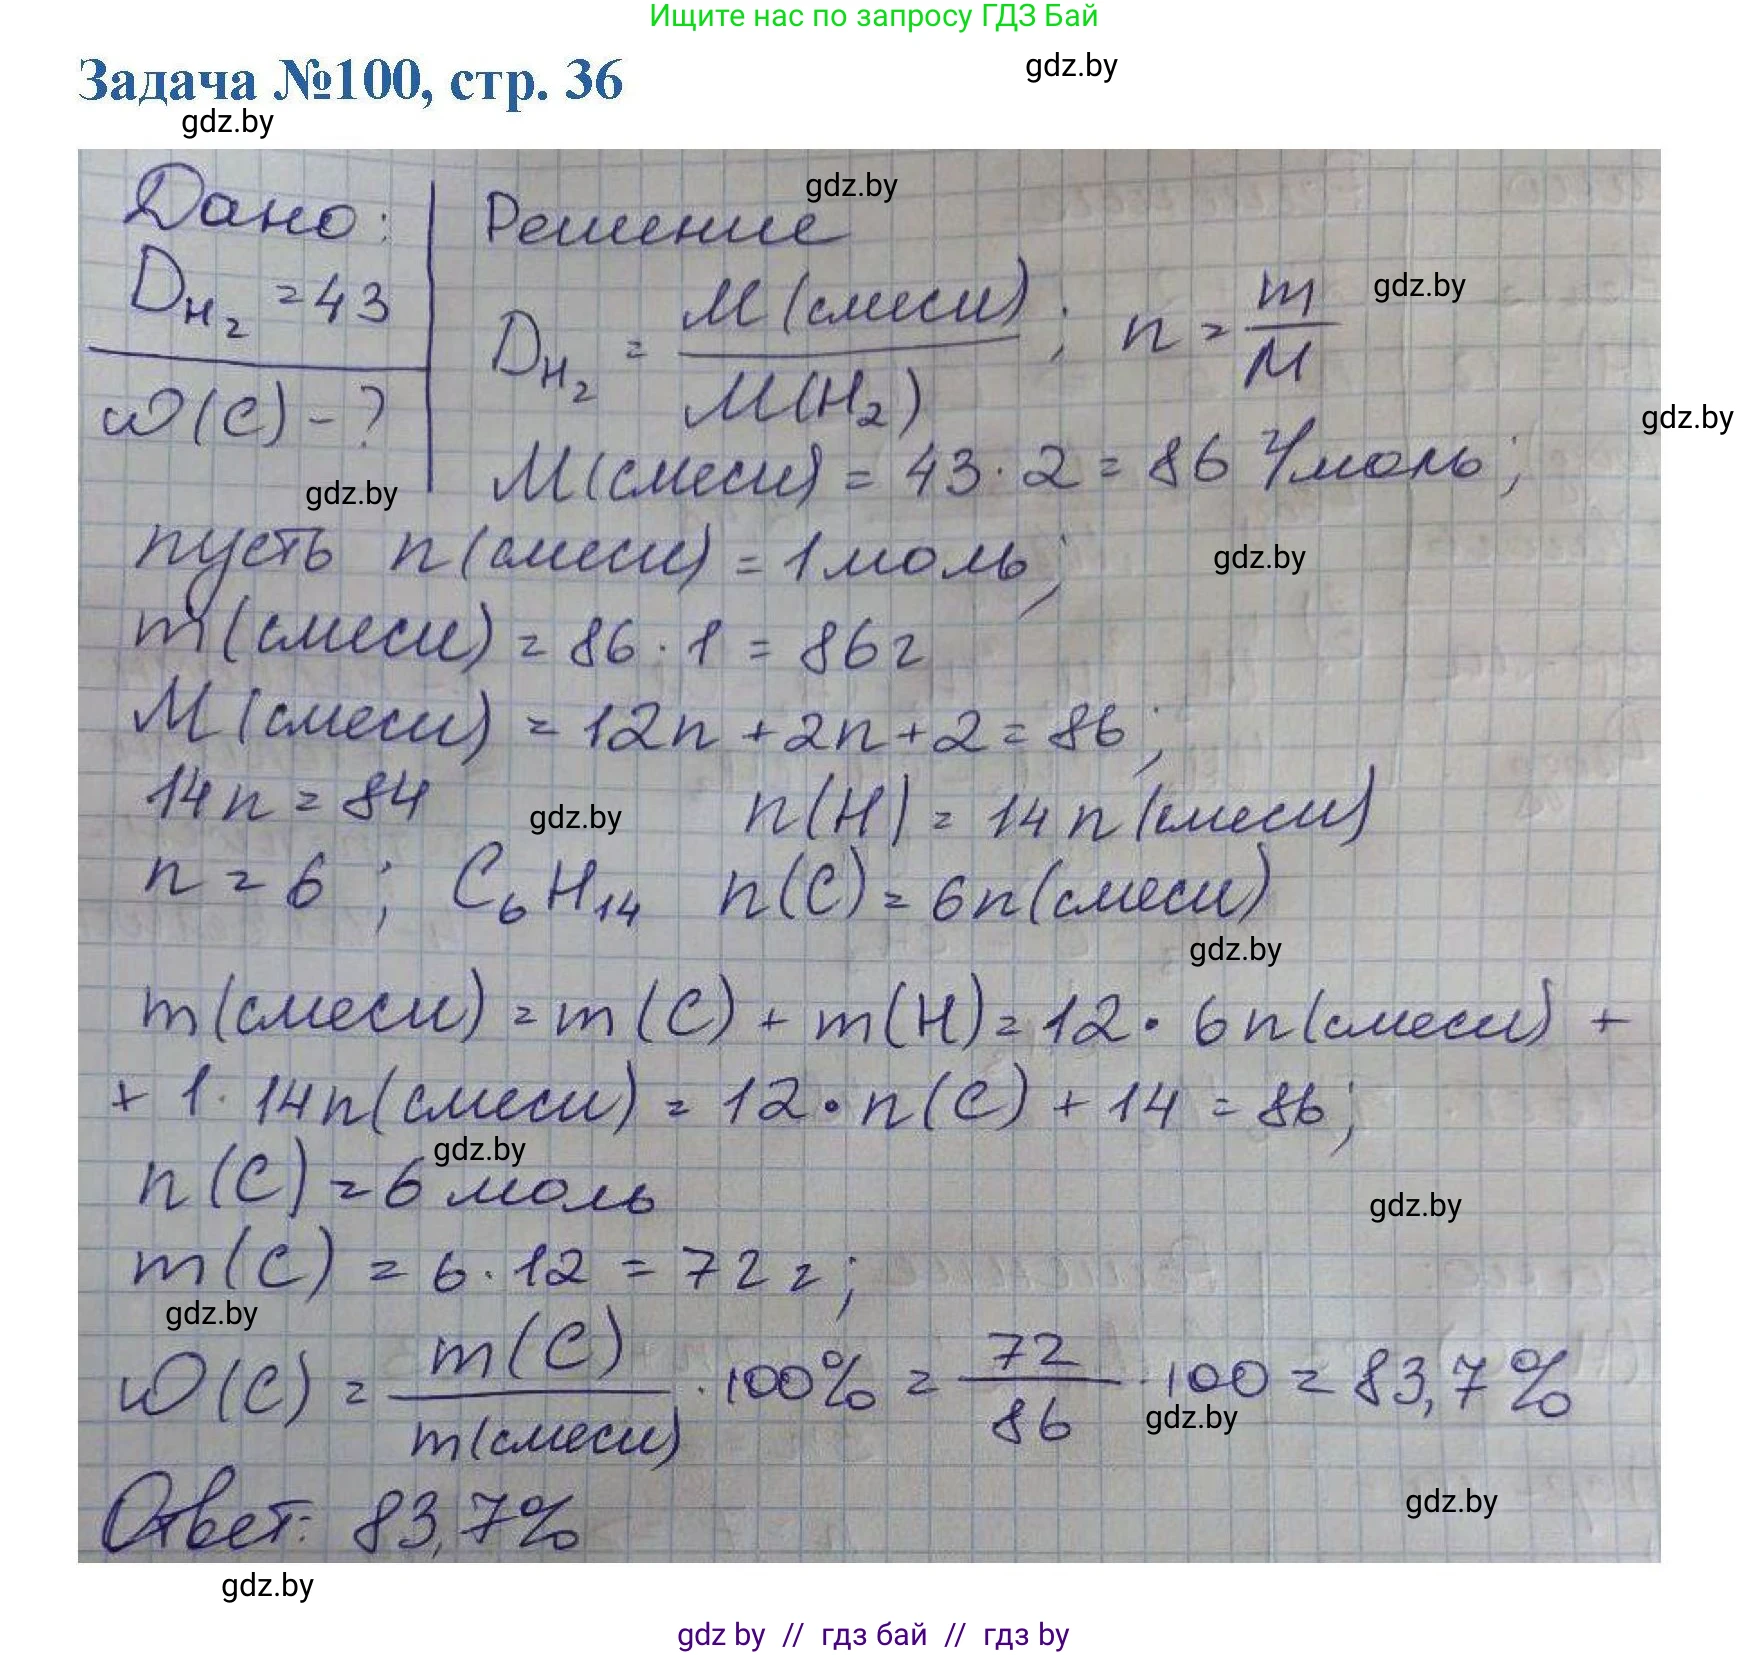 Ищите нас по запросу ГДЗ Бай
Задача №100, стр. 36
gdz.by
gdz.by
Дано: Решение
gdz.by
D_{H_2} = 43
D_{H_2} = M(смеси) / M(H_2) ; n = m / M
gdz.by
ω(C) - ?
gdz.by
M(смеси) = 43 · 2 = 86 г/моль;
gdz.by
пусть n(смеси) = 1 моль;
gdz.by
m(смеси) = 86 · 1 = 86 г
M(смеси) = 12n + 2n + 2 = 86;
14n = 84 n(H) = 14n(смеси)
gdz.by
n = 6 ; C_6H_{14} n(C) = 6n(смеси)
gdz.by
m(смеси) = m(C) + m(H) = 12 · 6n(смеси) +
+ 1 · 14n(смеси) = 12 · n(C) + 14 = 86;
gdz.by
n(C) = 6 моль
gdz.by
m(C) = 6 · 12 = 72 г;
gdz.by
ω(C) = m(C) / m(смеси) · 100% = 72 / 86 · 100 = 83,7%
gdz.by
Ответ: 83,7%
gdz.by
gdz.by
gdz by // гдз бай // гдз by